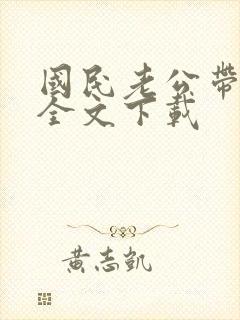 國民老公帶
全文下載
黃志凱